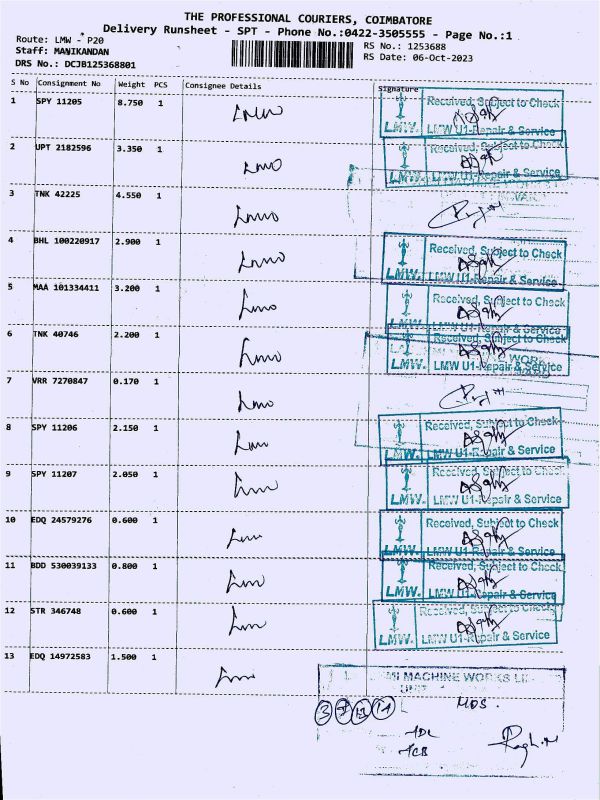 THE PROFESSIONAL COURIERS, COIMBATORE
Delivery Runsheet - SPT - Phone No.:0422-3505555 - Page No.:1
Route: LMW - P20
RS No.: 1253688
Staff: MANIKANDAN
RS Date: 06-Oct-2023
DRS No.: DCJB125368801
S No Consignment No Weight PCS Consignee Details Signature
1 SPY 11205 8.750 1 Lmw Received, Subject to Check
LMW. LMW U1-Repair & Service
2 UPT 2182596 3.350 1 Lmw Received, Subject to Check
LMW. LMW U1-Repair & Service
3 TNK 42225 4.550 1 Lmw
4 BHL 100220917 2.900 1 Lmw Received, Subject to Check
LMW. LMW U1-Repair & Service
5 MAA 101334411 3.200 1 Lmw Received, Subject to Check
LMW U1-Repair & Service
6 TNK 40746 2.200 1 Lmw Received, Subject to Check
LMW. LMW U1-Repair & Service
7 VRR 7270847 0.170 1 Lmw
8 SPY 11206 2.150 1 Lmw Received, Subject to Check
LMW. LMW U1-Repair & Service
9 SPY 11207 2.050 1 Lmw Received, Subject to Check
LMW. LMW U1-Repair & Service
10 EDQ 24579276 0.600 1 Lmw Received, Subject to Check
LMW. LMW U1-Repair & Service
11 BDD 530039133 0.800 1 Lmw Received, Subject to Check
LMW. LMW U1-Repair & Service
12 STR 346748 0.600 1 Lmw Received, Subject to Check
LMW. LMW U1-Repair & Service
13 EDQ 14972583 1.500 1 Lmw
MACHINE WORKS
UNIT
MDS.